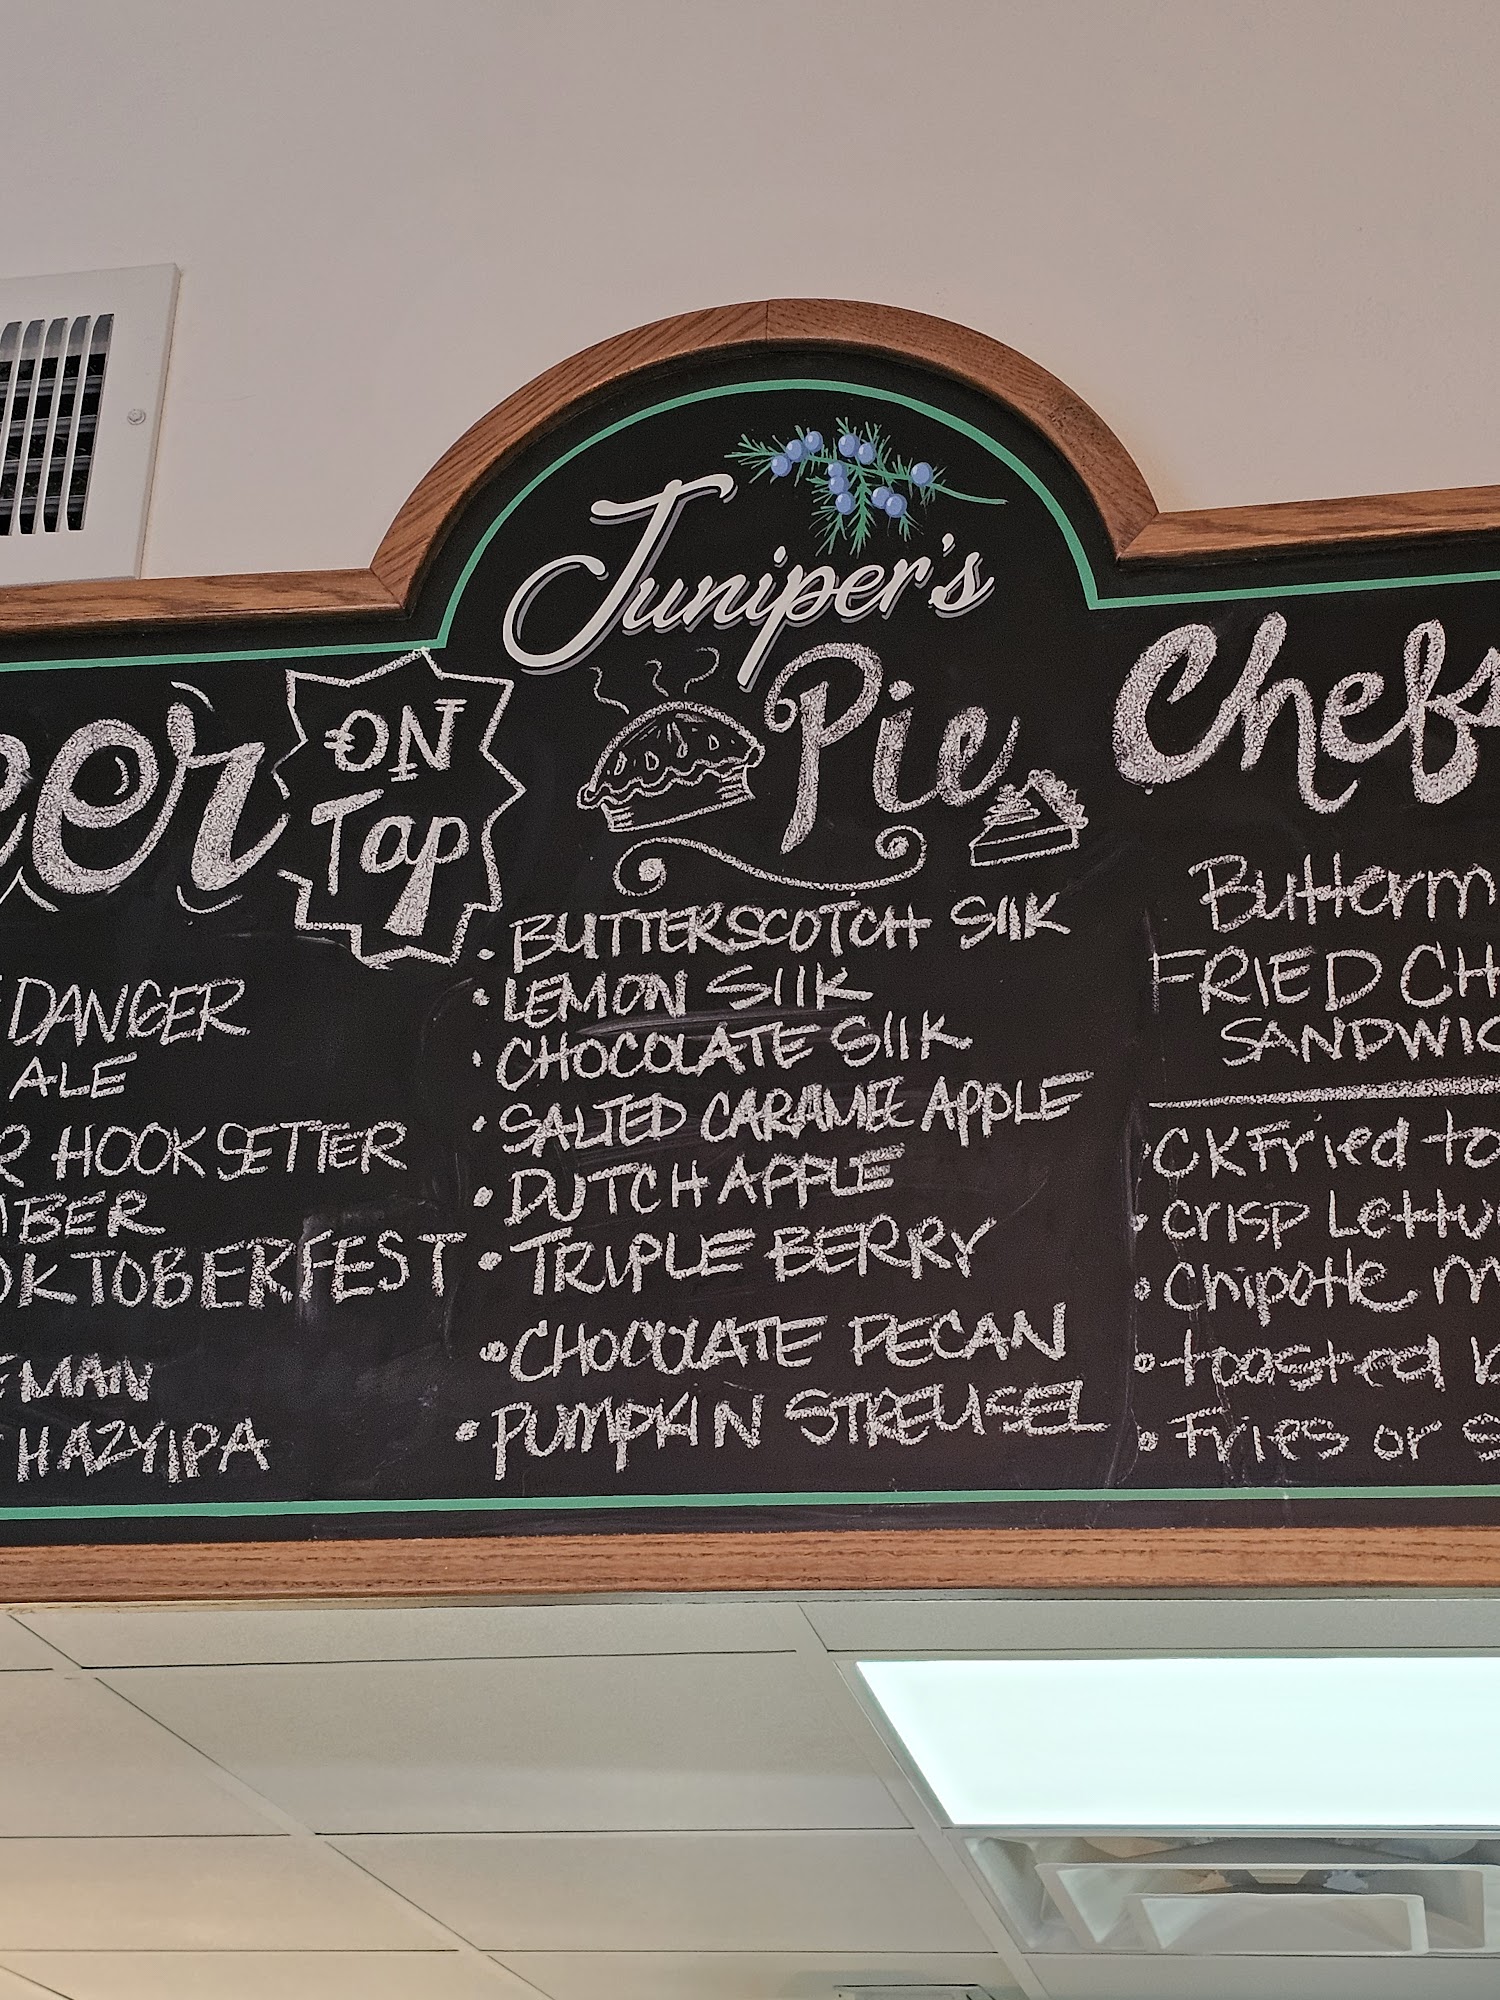 Juniper's
ON
Tap
DANGER
ALE
HOOK SETTER
OKTOBERFEST
HAZY IPA
Pie
• BUTTERSCOTCH SILK
• LEMON SILK
• CHOCOLATE SILK
• SALTED CARAMEL APPLE
• DUTCH APPLE
• TRIPLE BERRY
• CHOCOLATE PECAN
• PUMPKIN STREUSEL
Chefs
FRIED
• CKFried
• Crisp
• Chipotle
• toasted
• Fries or